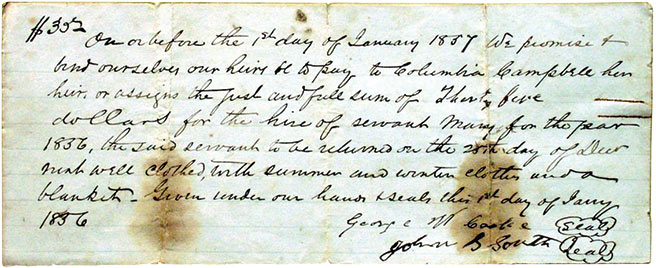 $35 00
On or before the 1st day of January 1857 We promise &
bind ourselves our heirs &c to pay to Columbia Campbell her
heirs or assigns the just and full sum of Thirty five
dollars for the hire of servant Mary for the year
1856, the said servant to be returned on the 25th day of Decr
next well clothed, with summer and winter clothes and a
blanket - Given under our hands & seals this 1st day of Jany
1856
George W Cooke Seal
John G South Seal